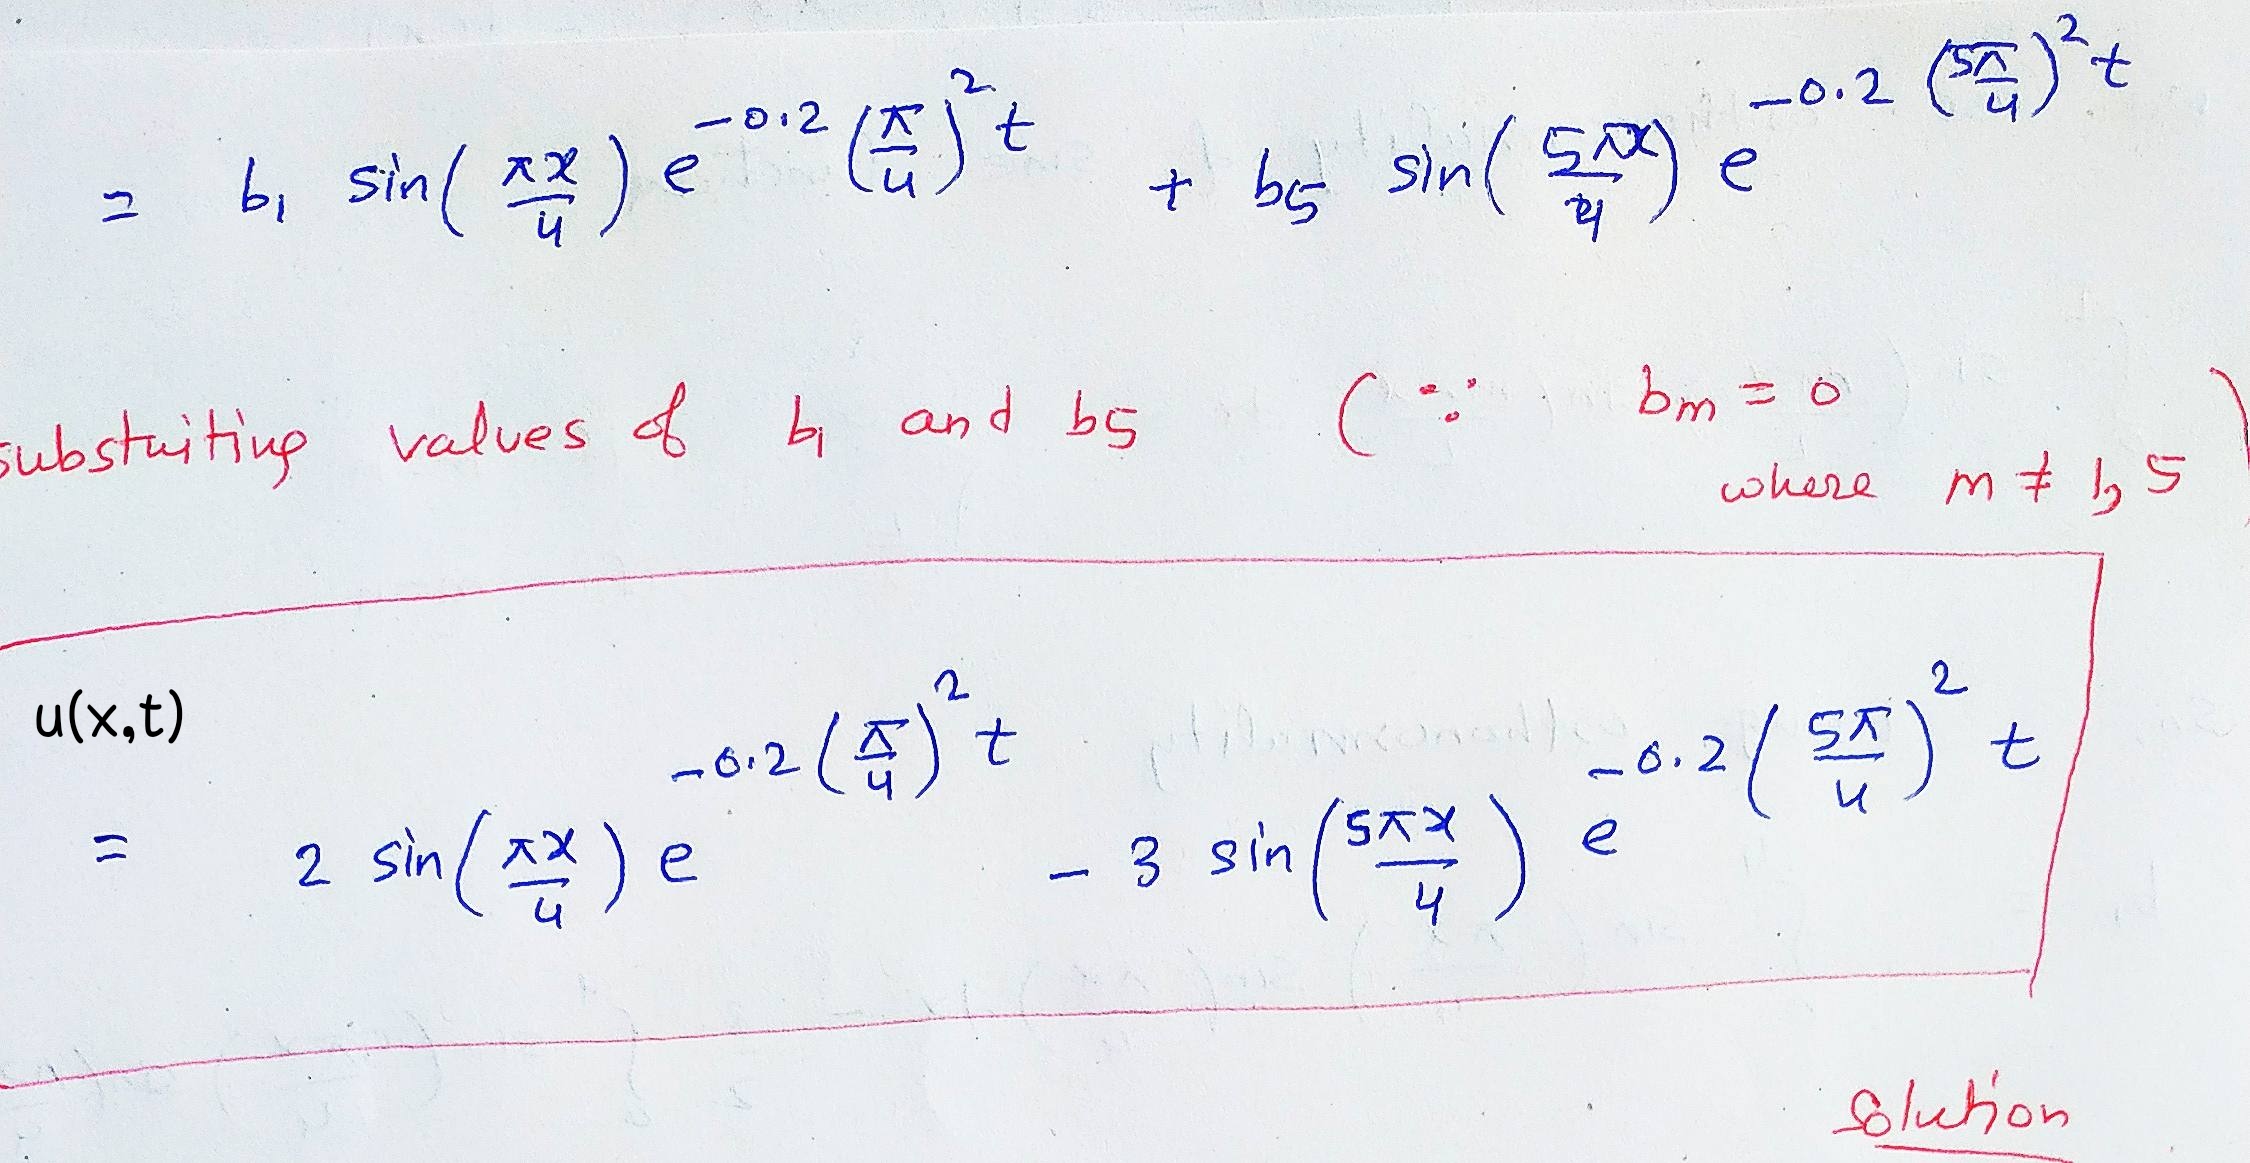 = b₁ sin(πx/4) e^{-0.2 (π/4)² t} + b5 sin(5πx/4) e^{-0.2 (5π/4)² t}
substuiting values of b₁ and b5 (∵ bm = 0
where m ≠ 1, 5)
u(x,t)
= 2 sin(πx/4) e^{-0.2 (π/4)² t} - 3 sin(5πx/4) e^{-0.2 (5π/4)² t}
Solution